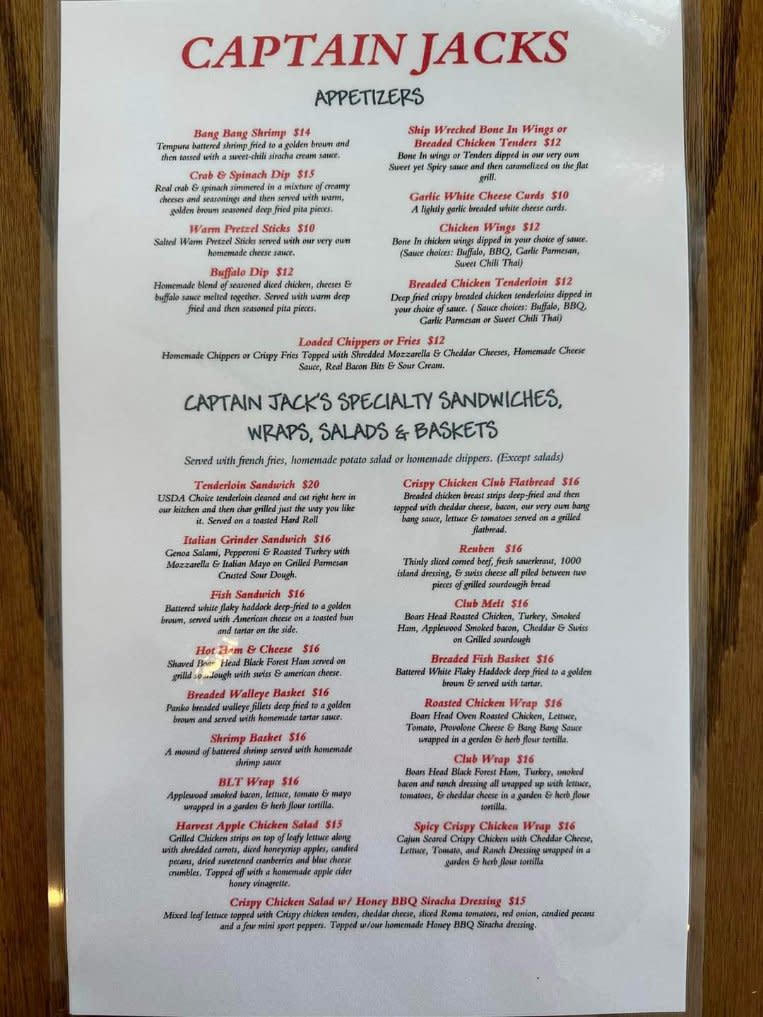 CAPTAIN JACKS
APPETIZERS
Bang Bang Shrimp $14
Tempura battered shrimp fried to a golden brown and
then tossed with a sweet-chili siracha cream sauce.
Crab & Spinach Dip $15
Real crab & spinach simmered in a mixture of creamy
cheeses and seasonings and then served with warm,
golden brown seasoned deep fried pita pieces.
Warm Pretzel Sticks $10
Salted Warm Pretzel Sticks served with our very own
homemade cheese sauce.
Buffalo Dip $12
Homemade blend of seasoned diced chicken, cheeses &
buffalo sauce melted together. Served with warm deep
fried and then seasoned pita pieces.
Ship Wrecked Bone In Wings or
Breaded Chicken Tenders $12
Bone In wings or Tenders dipped in our very own
Sweet yet Spicy sauce and then caramelized on the flat
grill.
Garlic White Cheese Curds $10
A lightly garlic breaded white cheese curds.
Chicken Wings $12
Bone In chicken wings dipped in your choice of sauce.
(Sauce choices: Buffalo, BBQ, Garlic Parmesan,
Sweet Chili Thai)
Breaded Chicken Tenderloin $12
Deep fried crispy breaded chicken tenderloins dipped in
your choice of sauce. ( Sauce choices: Buffalo, BBQ,
Garlic Parmesan or Sweet Chili Thai)
Loaded Chippers or Fries $12
Homemade Chippers or Crispy Fries Topped with Shredded Mozzarella & Cheddar Cheeses, Homemade Cheese
Sauce, Real Bacon Bits & Sour Cream.
CAPTAIN JACK'S SPECIALTY SANDWICHES,
WRAPS, SALADS & BASKETS
Served with french fries, homemade potato salad or homemade chippers. (Except salads)
Tenderloin Sandwich $20
USDA Choice tenderloin cleaned and cut right here in
our kitchen and then char grilled just the way you like
it. Served on a toasted Hard Roll
Italian Grinder Sandwich $16
Genoa Salami, Pepperoni & Roasted Turkey with
Mozzarella & Italian Mayo on Grilled Parmesan
Crusted Sour Dough.
Fish Sandwich $16
Battered white flaky haddock deep-fried to a golden
brown, served with American cheese on a toasted bun
and tartar on the side.
Hot Ham & Cheese $16
Shaved Boars Head Black Forest Ham served on
grilld sourdough with swiss & american cheese.
Breaded Walleye Basket $16
Panko breaded walleye fillets deep fried to a golden
brown and served with homemade tartar sauce.
Shrimp Basket $16
A mound of battered shrimp served with homemade
shrimp sauce
BLT Wrap $16
Applewood smoked bacon, lettuce, tomato & mayo
wrapped in a garden & herb flour tortilla.
Harvest Apple Chicken Salad $15
Grilled Chicken strips on top of leafy lettuce along
with shredded carrots, diced honeycrisp apples, candied
pecans, dried sweetened cranberries and blue cheese
crumbles. Topped off with a homemade apple cider
honey vinagrette.
Crispy Chicken Club Flatbread $16
Breaded chicken breast strips deep-fried and then
topped with cheddar cheese, bacon, our very own bang
bang sauce, lettuce & tomatoes served on a grilled
flatbread.
Reuben $16
Thinly sliced corned beef, fresh sauerkraut, 1000
island dressing, & swiss cheese all piled between two
pieces of grilled sourdougjh bread
Club Melt $16
Boars Head Roasted Chicken, Turkey, Smoked
Ham, Applewood Smoked bacon, Cheddar & Swiss
on Grilled sourdough
Breaded Fish Basket $16
Battered White Flaky Haddock deep fried to a golden
brown & served with tartar.
Roasted Chicken Wrap $16
Boars Head Oven Roasted Chicken, Lettuce,
Tomato, Provolone Cheese & Bang Bang Sauce
wrapped in a gerden & herb flour tortilla.
Club Wrap $16
Boars Head Black Forest Ham, Turkey, smoked
bacon and ranch dressing all wrapped up with lettuce,
tomatoes, & cheddar cheese in a garden & herb flour
tortilla.
Spicy Crispy Chicken Wrap $16
Cajun Seared Crispy Chicken with Cheddar Cheese,
Lettuce, Tomato, and Ranch Dressing wrapped in a
garden & herb flour tortilla
Crispy Chicken Salad w/ Honey BBQ Siracha Dressing $15
Mixed leaf lettuce topped with Crispy chicken tenders, cheddar cheese, sliced Roma tomatoes, red onion, candied pecans
and a few mini sport peppers. Topped w/our homemade Honey BBQ Siracha dressing.